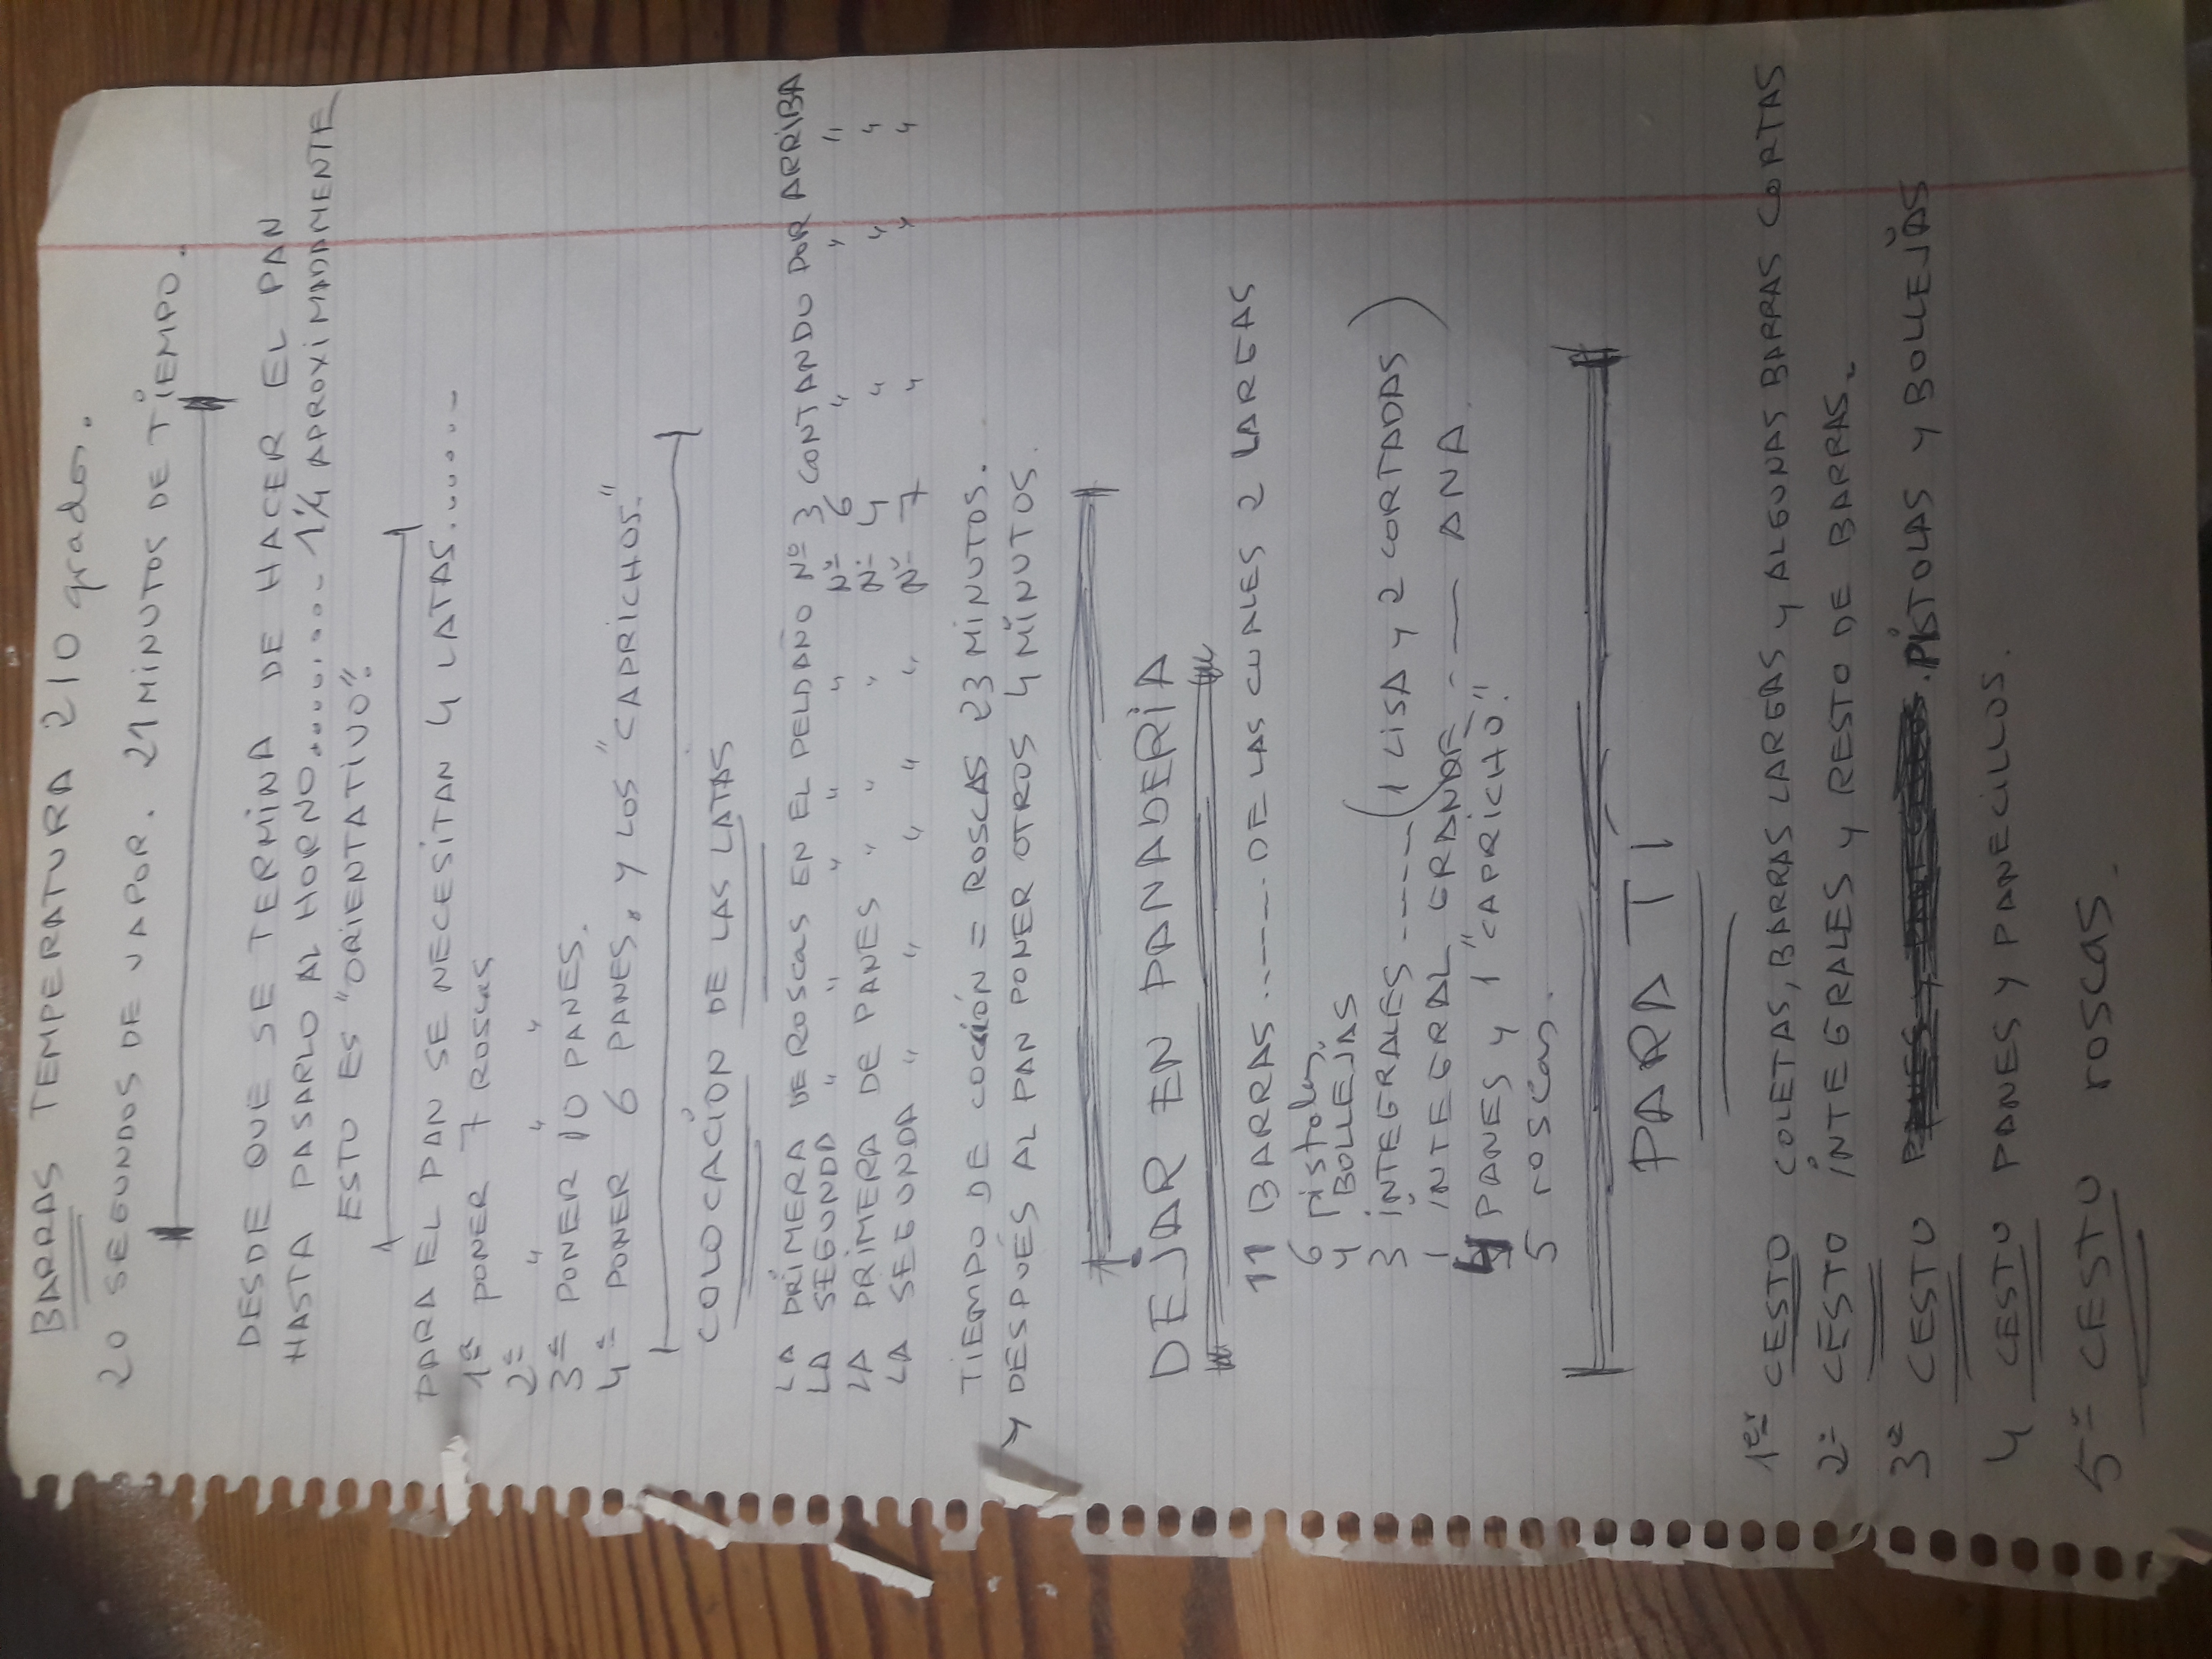 BARRAS TEMPERATURA 210 grados.
20 SEGUNDOS DE VAPOR. 21 MINUTOS DE TIEMPO.
DESDE QUE SE TERMINA DE HACER EL PAN
HASTA PASARLO AL HORNO......... 1¼ APROXIMADAMENTE
ESTO ES "ORIENTATIVO".
PARA EL PAN SE NECESITAN 4 LATAS.......
1ª PONER 7 ROSCAS
2ª " " "
3ª PONER 10 PANES.
4ª PONER 6 PANES, Y LOS "CAPRICHOS."
COLOCACIÓN DE LAS LATAS
LA PRIMERA DE ROSCAS EN EL PELDAÑO Nº 3 CONTANDO POR ARRIBA
LA SEGUNDA " " " " " Nº 6 " " "
LA PRIMERA DE PANES " " " Nº 4 " " "
LA SEGUNDA " " " " " Nº 7 " " "
TIEMPO DE COCIÓN = ROSCAS 23 MINUTOS.
Y DESPUÉS AL PAN PONER OTROS 4 MINUTOS.
DEJAR EN PANADERIA
11 BARRAS ------ DE LAS CUALES 2 LARGAS
6 pistolas
4 BOLLEJAS
3 INTEGRALES ----- (1 LISA Y 2 CORTADAS)
1 INTEGRAL GRANDE --- ANA.
4 PANES Y 1 "CAPRICHO".
5 roscas.
PARA TI
1er CESTO COLETAS, BARRAS LARGAS Y ALGUNAS BARRAS CORTAS
2º CESTO INTEGRALES Y RESTO DE BARRAS.
3º CESTO PISTOLAS Y BOLLEJAS
4 CESTO PANES Y PANECILLOS.
5º CESTO roscas.